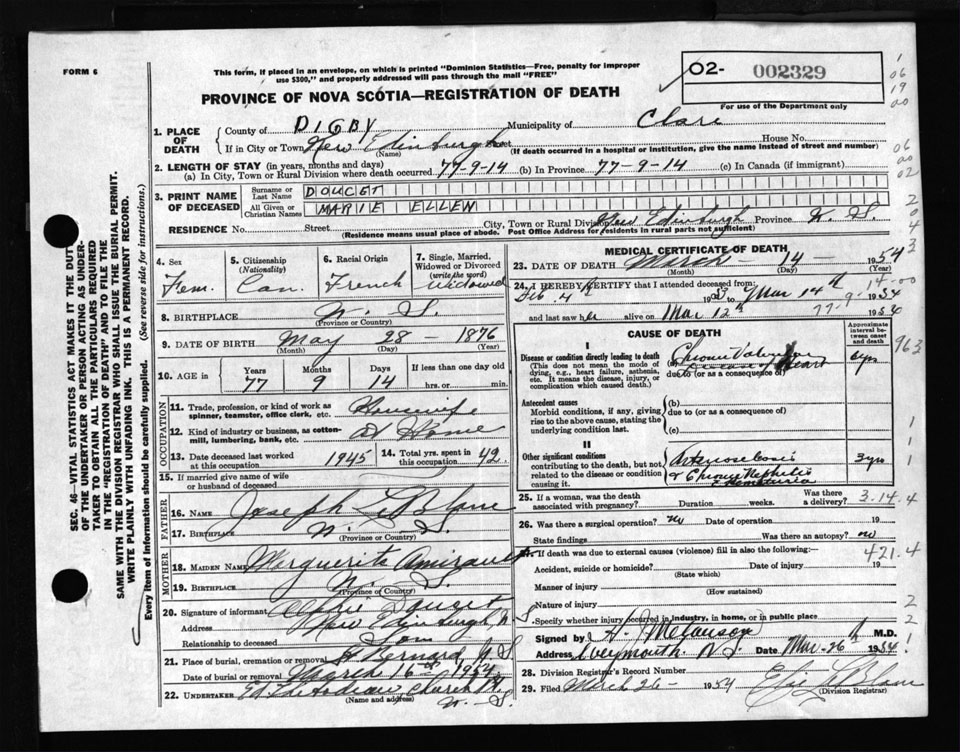 FORM 6
This form, if placed in an envelope, on which is printed "Dominion Statistics—Free, penalty for improper
use $300," and properly addressed will pass through the mail "FREE"
O2- 002329
For use of the Department only
PROVINCE OF NOVA SCOTIA—REGISTRATION OF DEATH
SEC. 46—VITAL STATISTICS ACT MAKES IT THE DUTY
OF THE UNDERTAKER OR PERSON ACTING AS UNDER-
TAKER TO OBTAIN ALL THE PARTICULARS REQUIRED
IN THE "REGISTRATION OF DEATH" AND TO FILE THE
SAME WITH THE DIVISION REGISTRAR WHO SHALL ISSUE THE BURIAL PERMIT.
WRITE PLAINLY WITH UNFADING INK. THIS IS A PERMANENT RECORD.
Every item of information should be carefully supplied. (See reverse side for instructions.)
1. PLACE OF DEATH
County of DIGBY Municipality of Clare
If in City or Town New Edinburgh Street House No.
(Name) (If death occurred in a hospital or institution, give the name instead of street and number)
2. LENGTH OF STAY (in years, months and days)
(a) In City, Town or Rural Division where death occurred 77-9-14 (b) In Province 77-9-14 (c) In Canada (if immigrant)
3. PRINT NAME OF DECEASED
Surname or Last Name DOUCET
All Given or Christian Names MARIE ELLEN
RESIDENCE No. Street City, Town or Rural Division New Edinburgh Province N. S.
(Residence means usual place of abode. Post Office Address for residents in rural parts not sufficient)
4. Sex Fem.
5. Citizenship (Nationality) Can.
6. Racial Origin French
7. Single, Married, Widowed or Divorced (write the word) Widowed
8. BIRTHPLACE N. S.
(Province or Country)
9. DATE OF BIRTH May 28 - 1876
(Month) (Day) (Year)
10. AGE in Years 77 Months 9 Days 14 If less than one day old hrs. or min.
OCCUPATION
11. Trade, profession, or kind of work as spinner, teamster, office clerk, etc. Housewife
12. Kind of industry or business, as cotton-mill, lumbering, bank, etc. At Home
13. Date deceased last worked at this occupation 1945
14. Total yrs. spent in this occupation 42.
15. If married give name of wife or husband of deceased
FATHER
16. Name Joseph LeBlanc
17. Birthplace N. S.
(Province or Country)
MOTHER
18. MAIDEN NAME Marguerite Amirault
19. BIRTHPLACE N. S.
(Province or Country)
20. Signature of informant Doucet
Address New Edinburgh, N
Relationship to deceased Son
21. Place of burial, cremation or removal St Bernard N S
Date of burial or removal March 16th 1954
22. UNDERTAKER Church Pt
(Name and address) N. S.
MEDICAL CERTIFICATE OF DEATH
23. DATE OF DEATH March - 14 - 1954
(Month) (Day) (Year)
24. I HEREBY CERTIFY that I attended deceased from:
Feb 4th 1953 to Mar 14th 1954
and last saw her alive on Mar 12th 1954
CAUSE OF DEATH
Approximate interval between onset and death
I
Disease or condition directly leading to death
(This does not mean the mode of dying, e.g., heart failure, asthenia, etc. It means the disease, injury, or complication which caused death.)
(a) Chronic Valvular Disease of Heart 6 yrs
due to (or as a consequence of)
Antecedent causes
Morbid conditions, if any, giving rise to the above cause, stating the underlying condition last.
(b)
due to (or as a consequence of)
(c)
II
Other significant conditions contributing to the death, but not related to the disease or condition causing it.
Arteriosclerosis 3 yrs
& Chronic Nephritis
25. If a woman, was the death associated with pregnancy? Duration weeks Was there a delivery?
3.14.4
26. Was there a surgical operation? no Date of operation 19
State findings Was there an autopsy? no
27. If death was due to external causes (violence) fill in also the following:
421.4
Accident, suicide or homicide? Date of injury 19
(State which)
Manner of injury
(How sustained)
Nature of injury
Specify whether injury occurred in industry, in home, or in public place
Signed by H. Melanson M.D.
Address Weymouth N.S. Date Mar-26th 1954
28. Division Registrar's Record Number
29. Filed March 26- 1954 Elie LeBlanc
(Division Registrar)